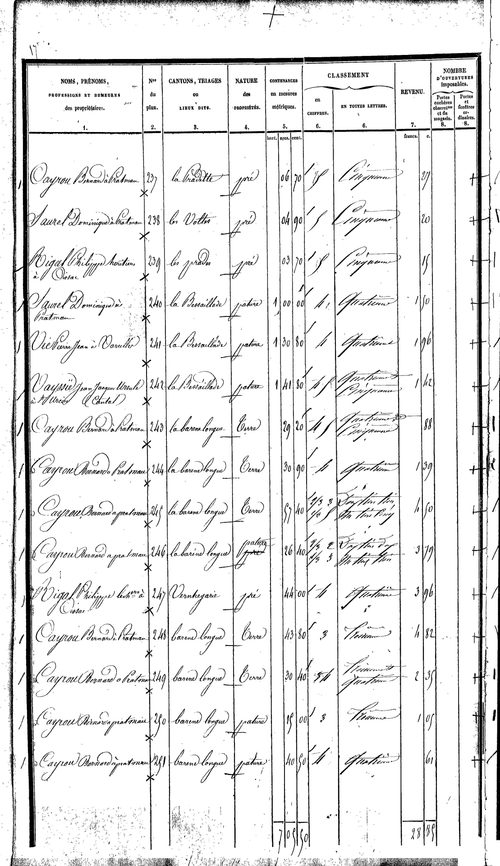 NOMS, PRÉNOMS, PROFESSIONS ET DEMEURES des propriétaires. 1.
Nos du plan. 2.
CANTONS, TRIAGES ou LIEUX DITS. 3.
NATURE des PROPRIÉTÉS. 4.
CONTENANCES en mesures métriques. 5.
CLASSEMENT
en CHIFFRES. 6.
EN TOUTES LETTRES. 6.
REVENU. 7.
NOMBRE D'OUVERTURES imposables.
Portes cochères charretères et de magasin. 8.
Portes et fenêtres ordinaires. 8.
hect. ares. cent. francs. c.
Cayrou Bernard à Pratman 237 pré 06 70 5 Cinquième 27
Saurel Dominique à Pratman 238 les Voltes pré 04 90 5 Cinquième 20
Rigal Philippe 239 les prades pré 03 70 5 Cinquième 15
à Cissac
Saurel Dominique à 240 la Bessaillade pature 1 00 00 4 quatrième 1 50
Pratman
Vié Pierre Jean à 241 la Bessaillade pature 1 30 80 4 quatrième 1 96
Vayssié Jean Jacques 242 la Bessaillade pature 1 41 80 4 5 quatrième et Cinquième 1 42
(Cantal)
Cayrou Bernard à Pratman 243 la barene longue Terre 29 20 4 5 quatrième et Cinquième 88
Cayrou Bernard à Pratman 244 la barene longue Terre 30 90 4 quatrième 1 39
Cayrou Bernard à pratman 245 la barene longue Terre 57 40 4 50
Cayrou Bernard à pratman 246 la barene longue pature 26 40 3 79
Rigal Philippe 247 Vernhegarie pré 44 00 4 quatrième 3 96
à Cissac
Cayrou Bernard à Pratman 248 barene longue Terre 43 80 3 troisième 4 82
Cayrou Bernard à Pratman 249 barene longue Terre 30 40 3 4 troisième et quatrième 2 35
Cayrou Bernard à pratman 250 barene longue pature 15 00 3 troisième 1 05
Cayrou Bernard à pratman 251 barene longue pature 40 50 4 quatrième 61
7 05 50 28 85